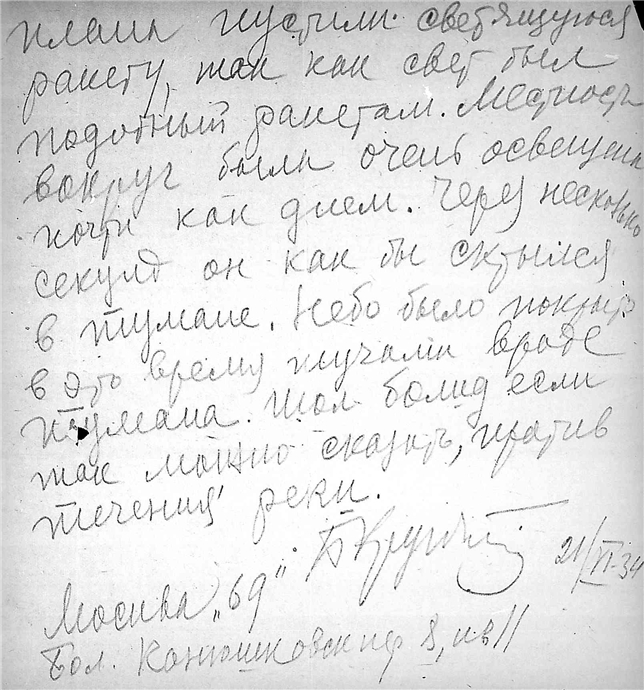 пустили светящуюся
ракету, так как свет был
подобный ракетам. Местность
вокруг была очень освещена
почти как днем. Через несколько
секунд он как бы скрылся
в тумане. Небо было покрыто
в это время тучами вроде
тумана. Шол болид если
так можно сказать, против
течения реки.
21/VI-34
Москва „69"
Бол. Конюшковский 8, кв 11